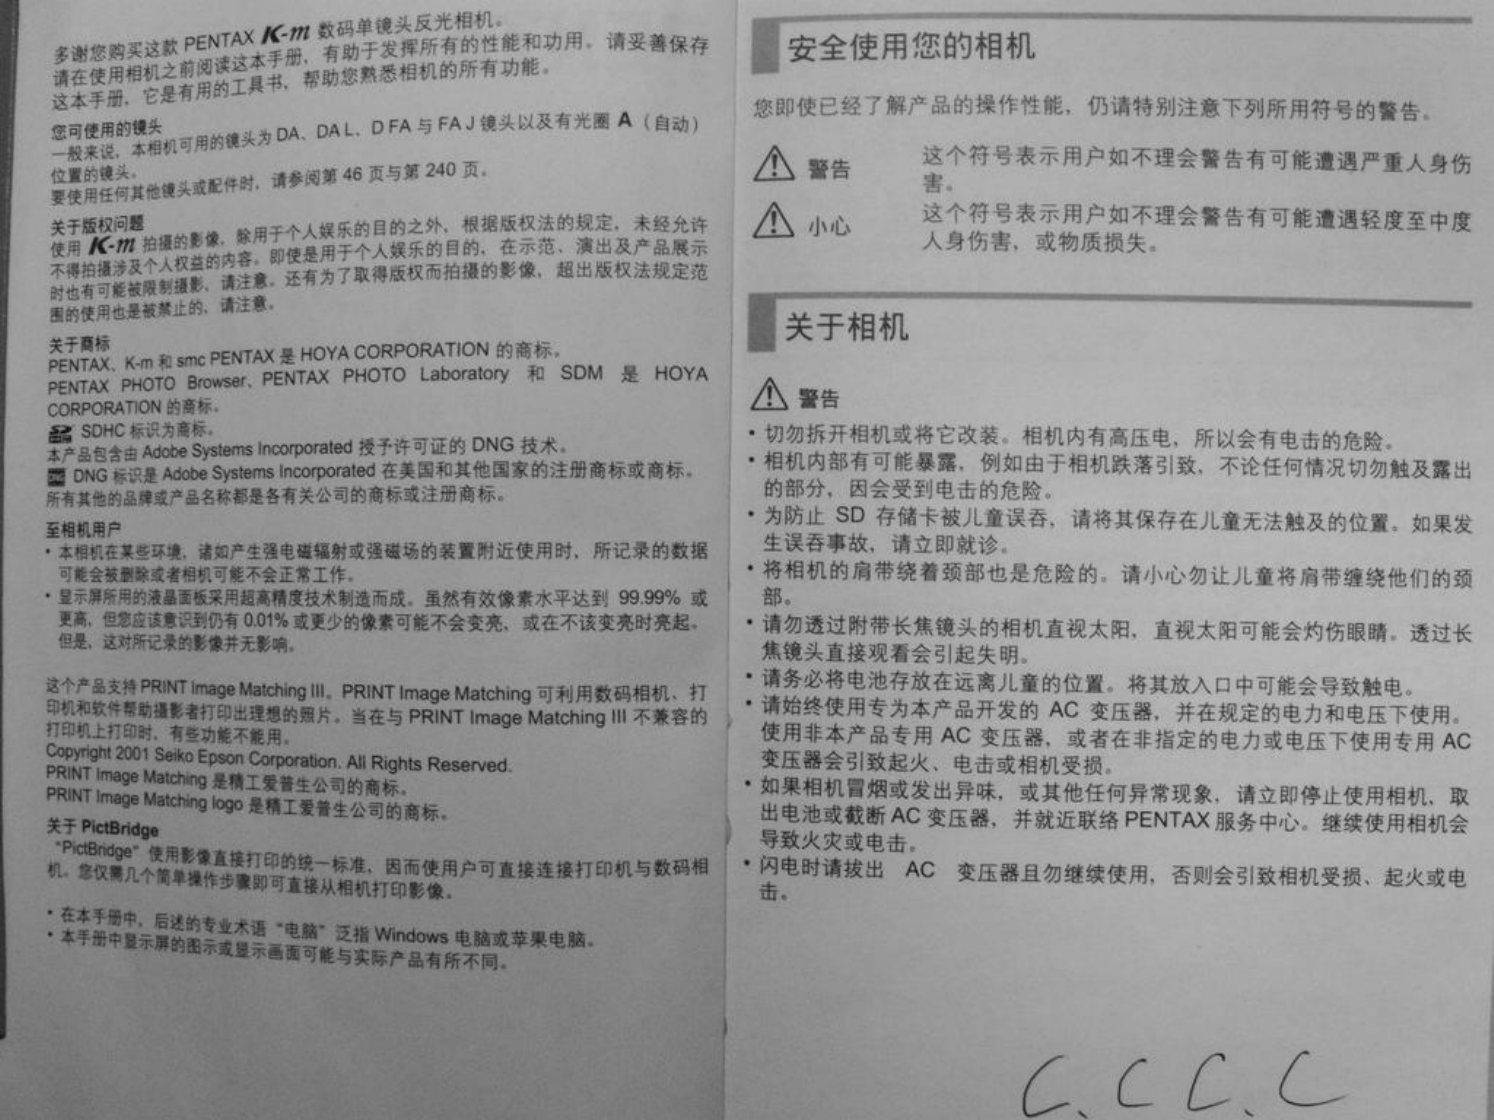 多谢您购买这款 PENTAX K-m 数码单镜头反光相机。
请在使用相机之前阅读这本手册，有助于发挥所有的性能和功用。请妥善保存
这本手册，它是有用的工具书，帮助您熟悉相机的所有功能。
您可使用的镜头
一般来说，本相机可用的镜头为 DA、DA L、D FA 与 FA J 镜头以及有光圈 A（自动）
位置的镜头。
要使用任何其他镜头或配件时，请参阅第 46 页与第 240 页。
关于版权问题
使用 K-m 拍摄的影像，除用于个人娱乐的目的之外，根据版权法的规定，未经允许
不得拍摄涉及个人权益的内容。即使是用于个人娱乐的目的，在示范、演出及产品展示
时也有可能被限制摄影，请注意。还有为了取得版权而拍摄的影像，超出版权法规定范
围的使用也是被禁止的，请注意。
关于商标
PENTAX、K-m 和 smc PENTAX 是 HOYA CORPORATION 的商标。
PENTAX PHOTO Browser、PENTAX PHOTO Laboratory 和 SDM 是 HOYA
CORPORATION 的商标。
SDHC 标识为商标。
本产品包含由 Adobe Systems Incorporated 授予许可证的 DNG 技术。
DNG 标识是 Adobe Systems Incorporated 在美国和其他国家的注册商标或商标。
所有其他的品牌或产品名称都是各有关公司的商标或注册商标。
至相机用户
• 本相机在某些环境，诸如产生强电磁辐射或强磁场的装置附近使用时，所记录的数据
可能会被删除或者相机可能不会正常工作。
• 显示屏所用的液晶面板采用超高精度技术制造而成。虽然有效像素水平达到 99.99% 或
更高，但您应该意识到仍有 0.01% 或更少的像素可能不会变亮，或在不该变亮时亮起。
但是，这对所记录的影像并无影响。
这个产品支持 PRINT Image Matching III。PRINT Image Matching 可利用数码相机、打
印机和软件帮助摄影者打印出理想的照片。当在与 PRINT Image Matching III 不兼容的
打印机上打印时，有些功能不能用。
Copyright 2001 Seiko Epson Corporation. All Rights Reserved.
PRINT Image Matching 是精工爱普生公司的商标。
PRINT Image Matching logo 是精工爱普生公司的商标。
关于 PictBridge
“PictBridge” 使用影像直接打印的统一标准，因而使用户可直接连接打印机与数码相
机。您仅需几个简单操作步骤即可直接从相机打印影像。
• 在本手册中，后述的专业术语“电脑”泛指 Windows 电脑或苹果电脑。
• 本手册中显示屏的图示或显示画面可能与实际产品有所不同。
安全使用您的相机
您即使已经了解产品的操作性能，仍请特别注意下列所用符号的警告。
警告 这个符号表示用户如不理会警告有可能遭遇严重人身伤
害。
小心 这个符号表示用户如不理会警告有可能遭遇轻度至中度
人身伤害，或物质损失。
关于相机
警告
• 切勿拆开相机或将它改装。相机内有高压电，所以会有电击的危险。
• 相机内部有可能暴露，例如由于相机跌落引致，不论任何情况切勿触及露出
的部分，因会受到电击的危险。
• 为防止 SD 存储卡被儿童误吞，请将其保存在儿童无法触及的位置。如果发
生误吞事故，请立即就诊。
• 将相机的肩带绕着颈部也是危险的。请小心勿让儿童将肩带缠绕他们的颈
部。
• 请勿透过附带长焦镜头的相机直视太阳，直视太阳可能会灼伤眼睛。透过长
焦镜头直接观看会引起失明。
• 请务必将电池存放在远离儿童的位置。将其放入口中可能会导致触电。
• 请始终使用专为本产品开发的 AC 变压器，并在规定的电力和电压下使用。
使用非本产品专用 AC 变压器，或者在非指定的电力或电压下使用专用 AC
变压器会引致起火、电击或相机受损。
• 如果相机冒烟或发出异味，或其他任何异常现象，请立即停止使用相机，取
出电池或截断 AC 变压器，并就近联络 PENTAX 服务中心。继续使用相机会
导致火灾或电击。
• 闪电时请拔出 AC 变压器且勿继续使用，否则会引致相机受损、起火或电
击。
C.CC.C